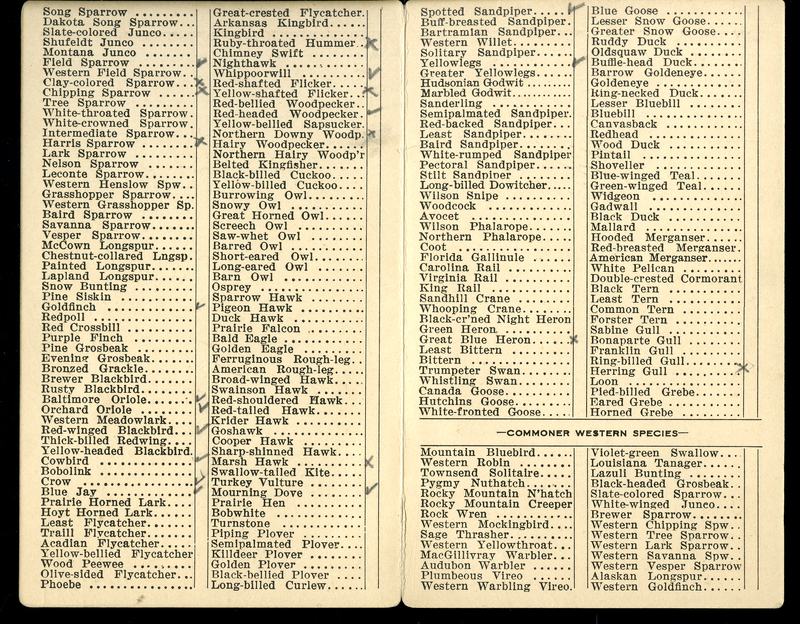 Song Sparrow
Dakota Song Sparrow
Slate-colored Junco
Shufeldt Junco
Montana Junco
Field Sparrow
Western Field Sparrow
Clay-colored Sparrow
Chipping Sparrow
Tree Sparrow
White-throated Sparrow
White-crowned Sparrow
Intermediate Sparrow
Harris Sparrow
Lark Sparrow
Nelson Sparrow
Leconte Sparrow
Western Henslow Spw
Grasshopper Sparrow
Western Grasshopper Sp.
Baird Sparrow
Savanna Sparrow
Vesper Sparrow
McCown Longspur
Chestnut-collared Lngsp.
Painted Longspur
Lapland Longspur
Snow Bunting
Pine Siskin
Goldfinch
Redpoll
Red Crossbill
Purple Finch
Pine Grosbeak
Evening Grosbeak
Bronzed Grackle
Brewer Blackbird
Rusty Blackbird
Baltimore Oriole
Orchard Oriole
Western Meadowlark
Red-winged Blackbird
Thick-billed Redwing
Yellow-headed Blackbird
Cowbird
Bobolink
Crow
Blue Jay
Prairie Horned Lark
Hoyt Horned Lark
Least Flycatcher
Traill Flycatcher
Acadian Flycatcher
Yellow-bellied Flycatcher
Wood Peewee
Olive-sided Flycatcher
Phoebe
Great-crested Flycatcher
Arkansas Kingbird
Kingbird
Ruby-throated Hummer
Chimney Swift
Nighthawk
Whippoorwill
Red-shafted Flicker
Yellow-shafted Flicker
Red-bellied Woodpecker
Red-headed Woodpecker
Yellow-bellied Sapsucker
Northern Downy Woodp.
Hairy Woodpecker
Northern Hairy Woodp'r
Belted Kingfisher
Black-billed Cuckoo
Yellow-billed Cuckoo
Burrowing Owl
Snowy Owl
Great Horned Owl
Screech Owl
Saw-whet Owl
Barred Owl
Short-eared Owl
Long-eared Owl
Barn Owl
Osprey
Sparrow Hawk
Pigeon Hawk
Duck Hawk
Prairie Falcon
Bald Eagle
Golden Eagle
Ferruginous Rough-leg
American Rough-leg
Broad-winged Hawk
Swainson Hawk
Red-shouldered Hawk
Red-tailed Hawk
Krider Hawk
Goshawk
Cooper Hawk
Sharp-shinned Hawk
Marsh Hawk
Swallow-tailed Kite
Turkey Vulture
Mourning Dove
Prairie Hen
Bobwhite
Turnstone
Piping Plover
Semipalmated Plover
Killdeer Plover
Golden Plover
Black-bellied Plover
Long-billed Curlew
Spotted Sandpiper
Buff-breasted Sandpiper
Bartramian Sandpiper
Western Willet
Solitary Sandpiper
Yellowlegs
Greater Yellowlegs
Hudsonian Godwit
Marbled Godwit
Sanderling
Semipalmated Sandpiper
Red-backed Sandpiper
Least Sandpiper
Baird Sandpiper
White-rumped Sandpiper
Pectoral Sandpiper
Stilt Sandpiper
Long-billed Dowitcher
Wilson Snipe
Woodcock
Avocet
Wilson Phalarope
Northern Phalarope
Coot
Florida Gallinule
Carolina Rail
Virginia Rail
King Rail
Sandhill Crane
Whooping Crane
Black-cr'ned Night Heron
Green Heron
Great Blue Heron
Least Bittern
Bittern
Trumpeter Swan
Whistling Swan
Canada Goose
Hutchins Goose
White-fronted Goose
Blue Goose
Lesser Snow Goose
Greater Snow Goose
Ruddy Duck
Oldsquaw Duck
Buffle-head Duck
Barrow Goldeneye
Goldeneye
Ring-necked Duck
Lesser Bluebill
Bluebill
Canvasback
Redhead
Wood Duck
Pintail
Shoveller
Blue-winged Teal
Green-winged Teal
Widgeon
Gadwall
Black Duck
Mallard
Hooded Merganser
Red-breasted Merganser
American Merganser
White Pelican
Double-crested Cormorant
Black Tern
Least Tern
Common Tern
Forster Tern
Sabine Gull
Bonaparte Gull
Franklin Gull
Ring-billed Gull
Herring Gull
Loon
Pied-billed Grebe
Eared Grebe
Horned Grebe
—COMMONER WESTERN SPECIES—
Mountain Bluebird
Western Robin
Townsend Solitaire
Pygmy Nuthatch
Rocky Mountain N'hatch
Rocky Mountain Creeper
Rock Wren
Western Mockingbird
Sage Thrasher
Western Yellowthroat
MacGillivray Warbler
Audubon Warbler
Plumbeous Vireo
Western Warbling Vireo
Violet-green Swallow
Louisiana Tanager
Lazuli Bunting
Black-headed Grosbeak
Slate-colored Sparrow
White-winged Junco
Brewer Sparrow
Western Chipping Spw
Western Tree Sparrow
Western Lark Sparrow
Western Savanna Spw
Western Vesper Sparrow
Alaskan Longspur
Western Goldfinch